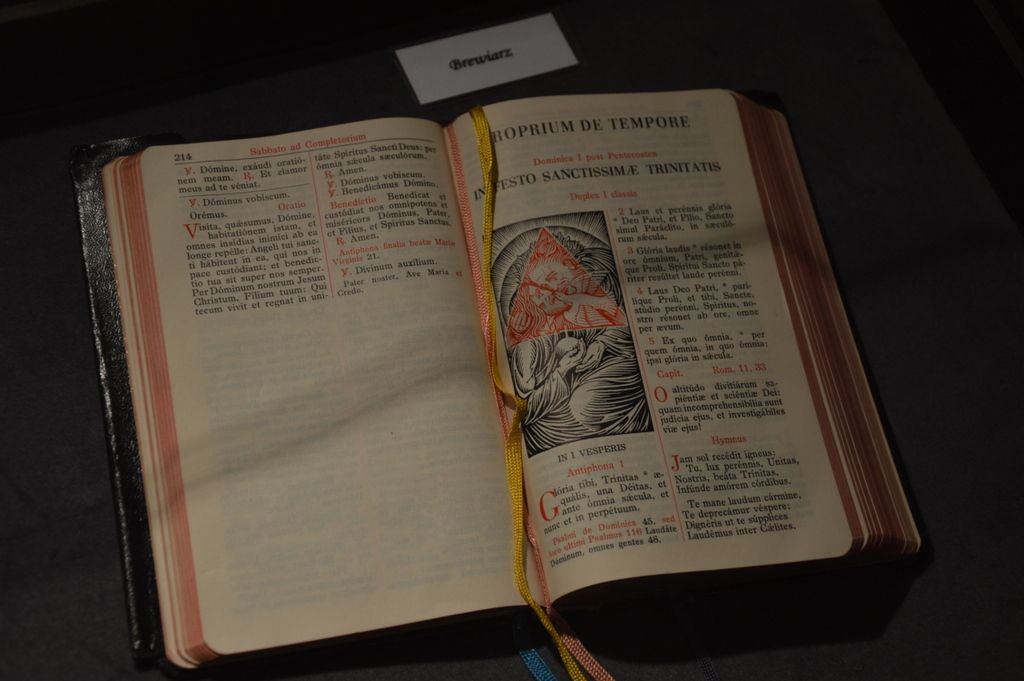 Brewiarz
214
Sabbato ad Completorium
℣. Dómine, exáudi oratió-
nem meam. ℟. Et clamor
meus ad te véniat.
℣. Dóminus vobíscum.
Orémus.
Oratio
Vísita, quǽsumus, Dómine,
habitatiónem istam, et
omnes insídias inimíci ab ea
longe repélle: Angeli tui sanc-
ti hábitent in ea, qui nos in
pace custódiant; et benedíc-
tio tua sit super nos semper.
Per Dóminum nostrum Jesum
Christum, Fílium tuum: Qui
tecum vivit et regnat in uni-
táte Spíritus Sancti Deus: per
ómnia sǽcula sæculórum.
℟. Amen.
℣. Dóminus vobíscum.
℣. Benedicámus Dómino.
Benedictio Benedícat et
custódiat nos omnípotens et
miséricors Dóminus, Pater,
et Fílius, et Spíritus Sanctus.
℟. Amen.
Antiphona finalis beatæ Mariæ
Virginis 21.
℣. Divínum auxílium.
Pater noster, Ave María et
Credo.
ROPRIUM DE TEMPORE
Dominica I post Pentecosten
IN FESTO SANCTISSIMÆ TRINITATIS
Duplex I classis
IN I VESPERIS
Antiphona 1
Glória tibi, Trínitas * æ-
quális, una Déitas, et
ante ómnia sǽcula, et
nunc et in perpétuum.
Psalmi de Dominica 45, sed
loco ultimi Psalmus 116 Laudáte
Dóminum, omnes gentes 48.
2 Laus et perénnis glória
* Deo Patri, et Fílio, Sancto
simul Paráclito, in sæculó-
rum sǽcula.
3 Glória laudis * résonet in
ore ómnium, Patri, genitǽ-
que Proli, Spirítui Sancto pá-
riter resúltet laude perénni.
4 Laus Deo Patri, * pari-
líque Proli, et tibi, Sancte,
stúdio perénni, Spíritus, no-
stro résonet ab ore, omne
per ævum.
5 Ex quo ómnia, * per
quem ómnia, in quo ómnia:
ipsi glória in sǽcula.
Capit. Rom. 11, 33
O altitúdo divitiárum sa-
piéntiæ et sciéntiæ Dei:
quam incomprehensibília sunt
judícia ejus, et investigábiles
viæ ejus!
Hymnus
Jam sol recédit ígneus:
Tu, lux perénnis, Unitas,
Nostris, beáta Trínitas,
Infúnde amórem córdibus.
Te mane laudum cármine,
Te deprecámur véspere;
Dignéris ut te súpplices
Laudémus inter Cǽlites.